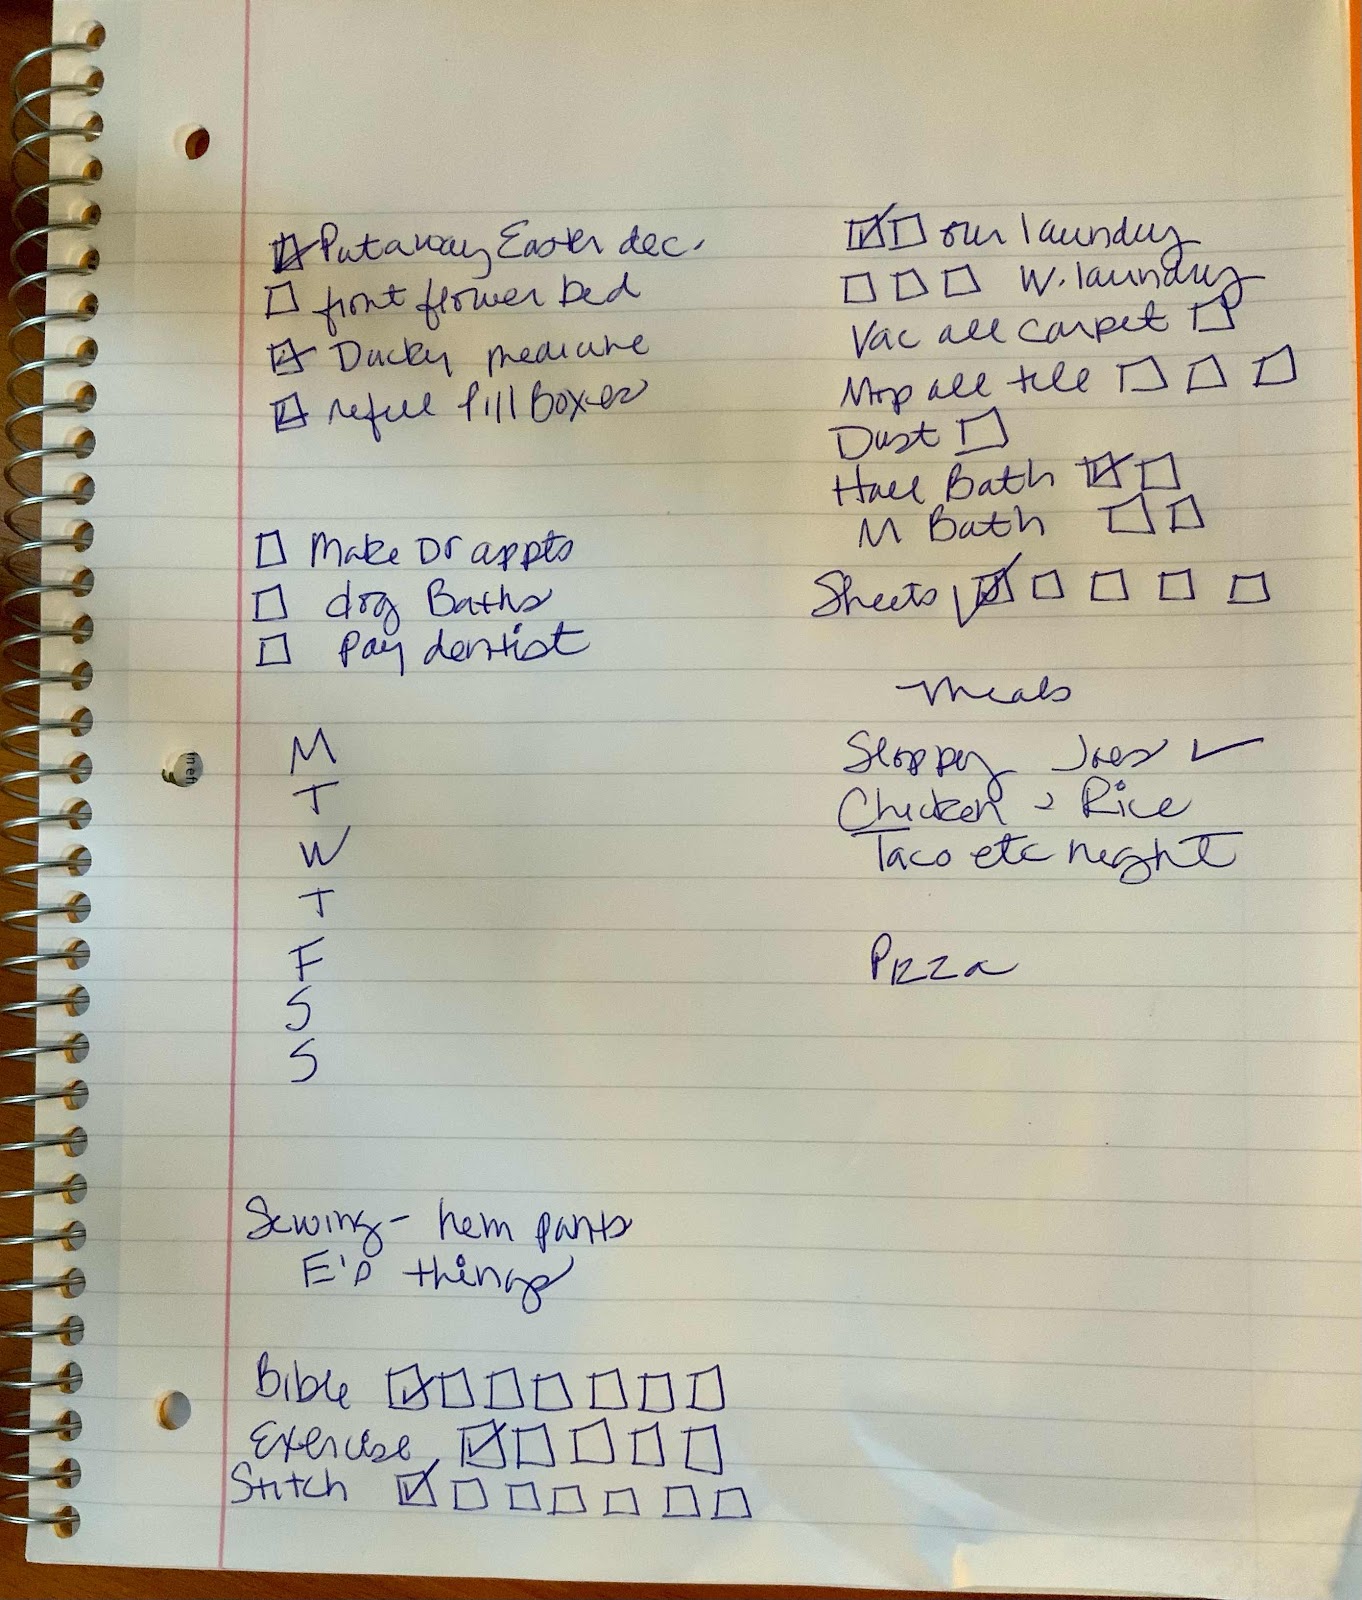 ☑ Put away Easter dec.
☐ front flower bed
☑ Ducky medicine
☑ refill Pill Boxes
☐ Make Dr appts
☐ dog Baths
☐ Pay dentist
☑ ☐ our laundry
☐ ☐ ☐ W. laundry
Vac all carpet ☐
Mop all tile ☐ ☐ ☐
Dust ☐
Hall Bath ☑ ☐
M Bath ☐ ☐
Sheets ✓ ☑ ☐ ☐ ☐ ☐
Meals
M Sloppy Joes ✓
T Chicken & Rice
W Taco etc night
T
F Pizza
S
S
Sewing - hem pants
E's things
Bible ☑ ☐ ☐ ☐ ☐ ☐ ☐
Exercise ☑ ☐ ☐ ☐ ☐
Stitch ☑ ☐ ☐ ☐ ☐ ☐ ☐